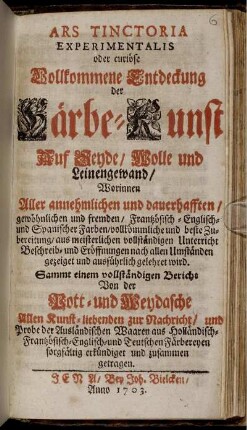 6
ARS TINCTORIA
EXPERIMENTALIS
oder curiöse
Vollkommene Entdeckung
der
Färbe-Kunst
Auf Seyde/ Wolle und
Leinengewand/
Worinnen
Aller annehmlichen und dauerhafften/
gewöhnlichen und fremden/ Frantzösisch-Englisch-
und Spanischer Farben/ vollkömmliche und beste Zu-
bereitung/ aus meisterlichen vollständigen Unterricht
Beschreib- und Eröffnungen nach allen Umständen
gezeiget und ausführlich gelehret wird.
Sammt einem vollständigen Bericht
Von der
Pott- und Weydasche
Allen Kunst-liebenden zur Nachricht/ und
Probe der Ausländischen Waaren aus Holländisch-
Frantzösisch-Englisch-und Teutschen Färbereyen
sorgfältig erkündiget und zusammen
getragen.
JENA/ Bey Joh. Bielcken/
Anno 1703.